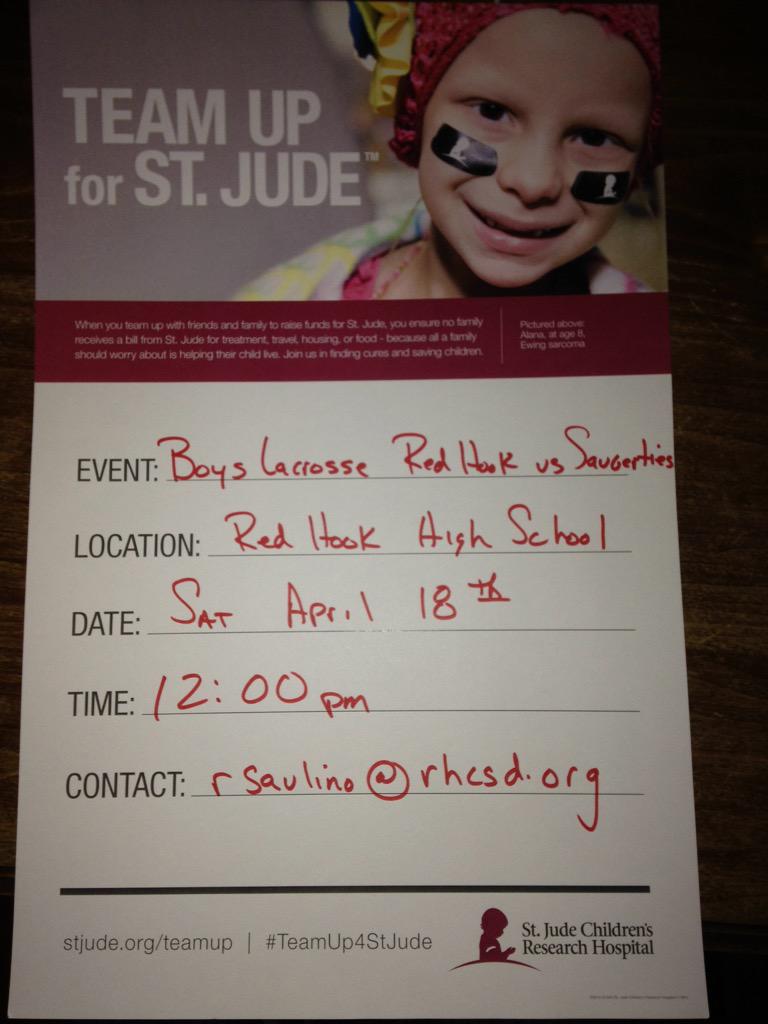 TEAM UP
for ST. JUDE™
When you team up with friends and family to raise funds for St. Jude, you ensure no family
receives a bill from St. Jude for treatment, travel, housing, or food - because all a family
should worry about is helping their child live. Join us in finding cures and saving children.
Pictured above:
Alana, at age 8,
Ewing sarcoma
EVENT: Boys Lacrosse Red Hook vs Saugerties
LOCATION: Red Hook High School
DATE: SAT April 18th
TIME: 12:00 pm
CONTACT: rsaulino@rhcsd.org
stjude.org/teamup | #TeamUp4StJude
St. Jude Children's
Research Hospital